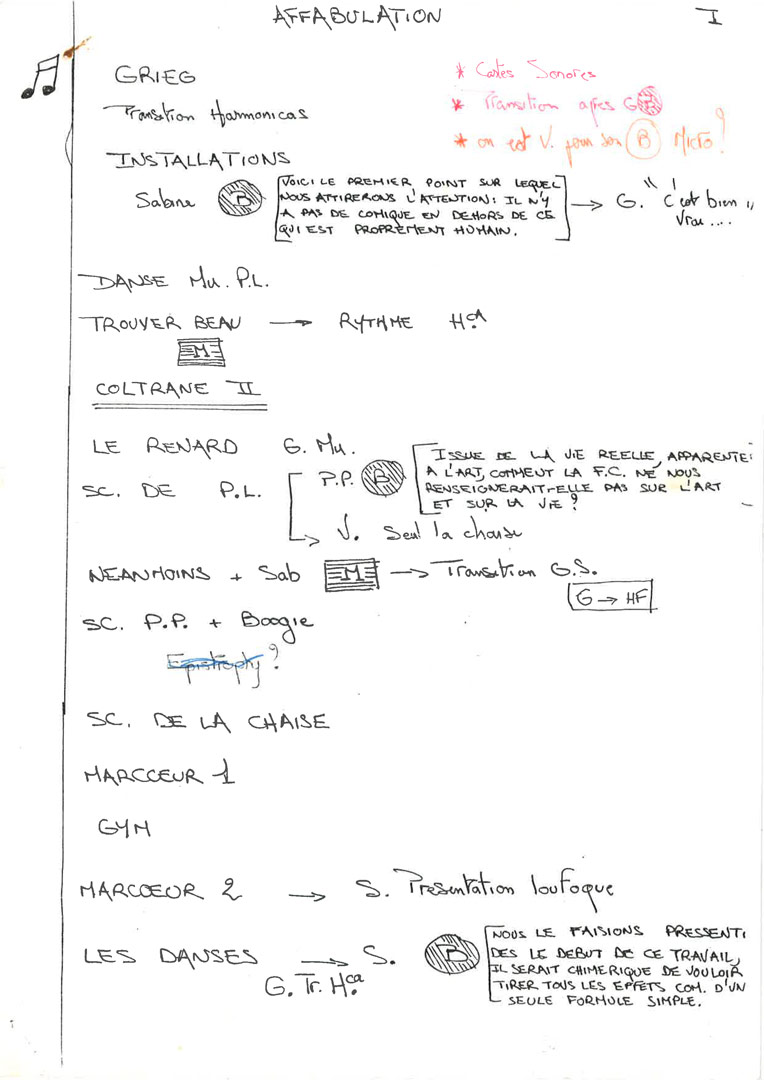 AFFABULATION I
GRIEG
* Cartes Sonores
Transition Harmonicas
* Transition après G B
* on est V. pour son B Micro ?
INSTALLATIONS
Sabine B
VOICI LE PREMIER POINT SUR LEQUEL
NOUS ATTIRERONS L'ATTENTION: IL N'Y
A PAS DE COMIQUE EN DEHORS DE CE
QUI EST PROPREMENT HUMAIN.
→ G. " C'est bien "
vrai ....
DANSE Mu. P.L.
TROUVER BEAU → RYTHME H.CA
M
COLTRANE II
LE RENARD G. Mu.
SC. DE P.L.
P.P. B
ISSUE DE LA VIE REELLE, APPARENTEE
A L'ART, COMMENT LA F.C. NE NOUS
RENSEIGNERAIT-ELLE PAS SUR L'ART
ET SUR LA VIE ?
→ V. Seul la chaise
NEANMOINS + Sab M → Transition G.S.
G → HF
SC. P.P. + Boogie
Epistrophy ?
SC. DE LA CHAISE
MARCOEUR 1
GYM
MARCOEUR 2 → S. Presentation loufoque
LES DANSES → S. B
G. Tr. H.ca
NOUS LE FAISIONS PRESSENTI
DES LE DEBUT DE CE TRAVAIL,
IL SERAIT CHIMERIQUE DE VOULOIR
TIRER TOUS LES EFFETS COM. D'UN
SEULE FORMULE SIMPLE.